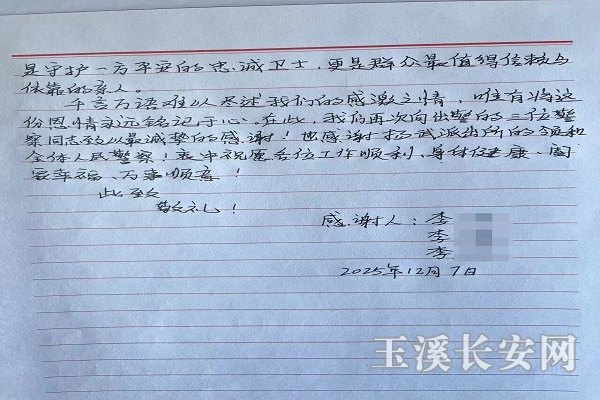 是守护一方平安的忠诚卫士，更是群众最值得信赖与
依靠的亲人。
千言万语难以尽述我们的感激之情，唯有将这
份恩情永远铭记于心。在此，我们再次向出警的三位警
察同志致以最诚挚的感谢！也感谢扬武派出所的领导和
全体人民警察！衷心祝愿各位工作顺利、身体健康、阖
家幸福、万事顺意！
此致
敬礼！
感谢人：李
李
李
2025年12月7日
玉溪长安网